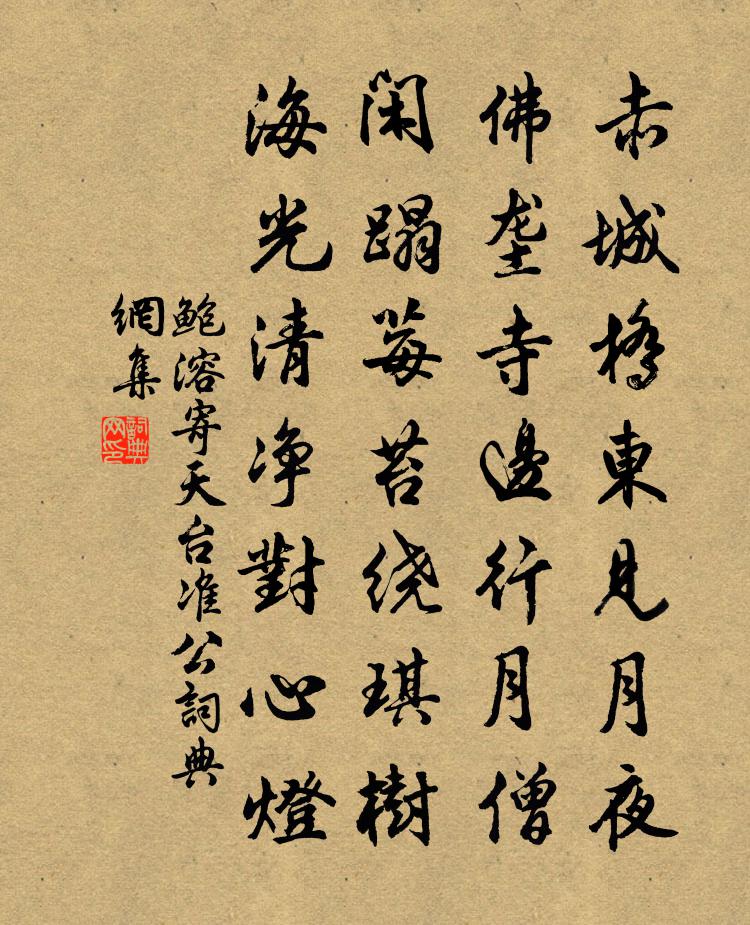 赤城橋東見月夜
佛垄寺邊行月僧
閑蹋莓苔绕琪樹
海光清净對心燈
鮑溶寄天台准公詞典
網集
詞典网印